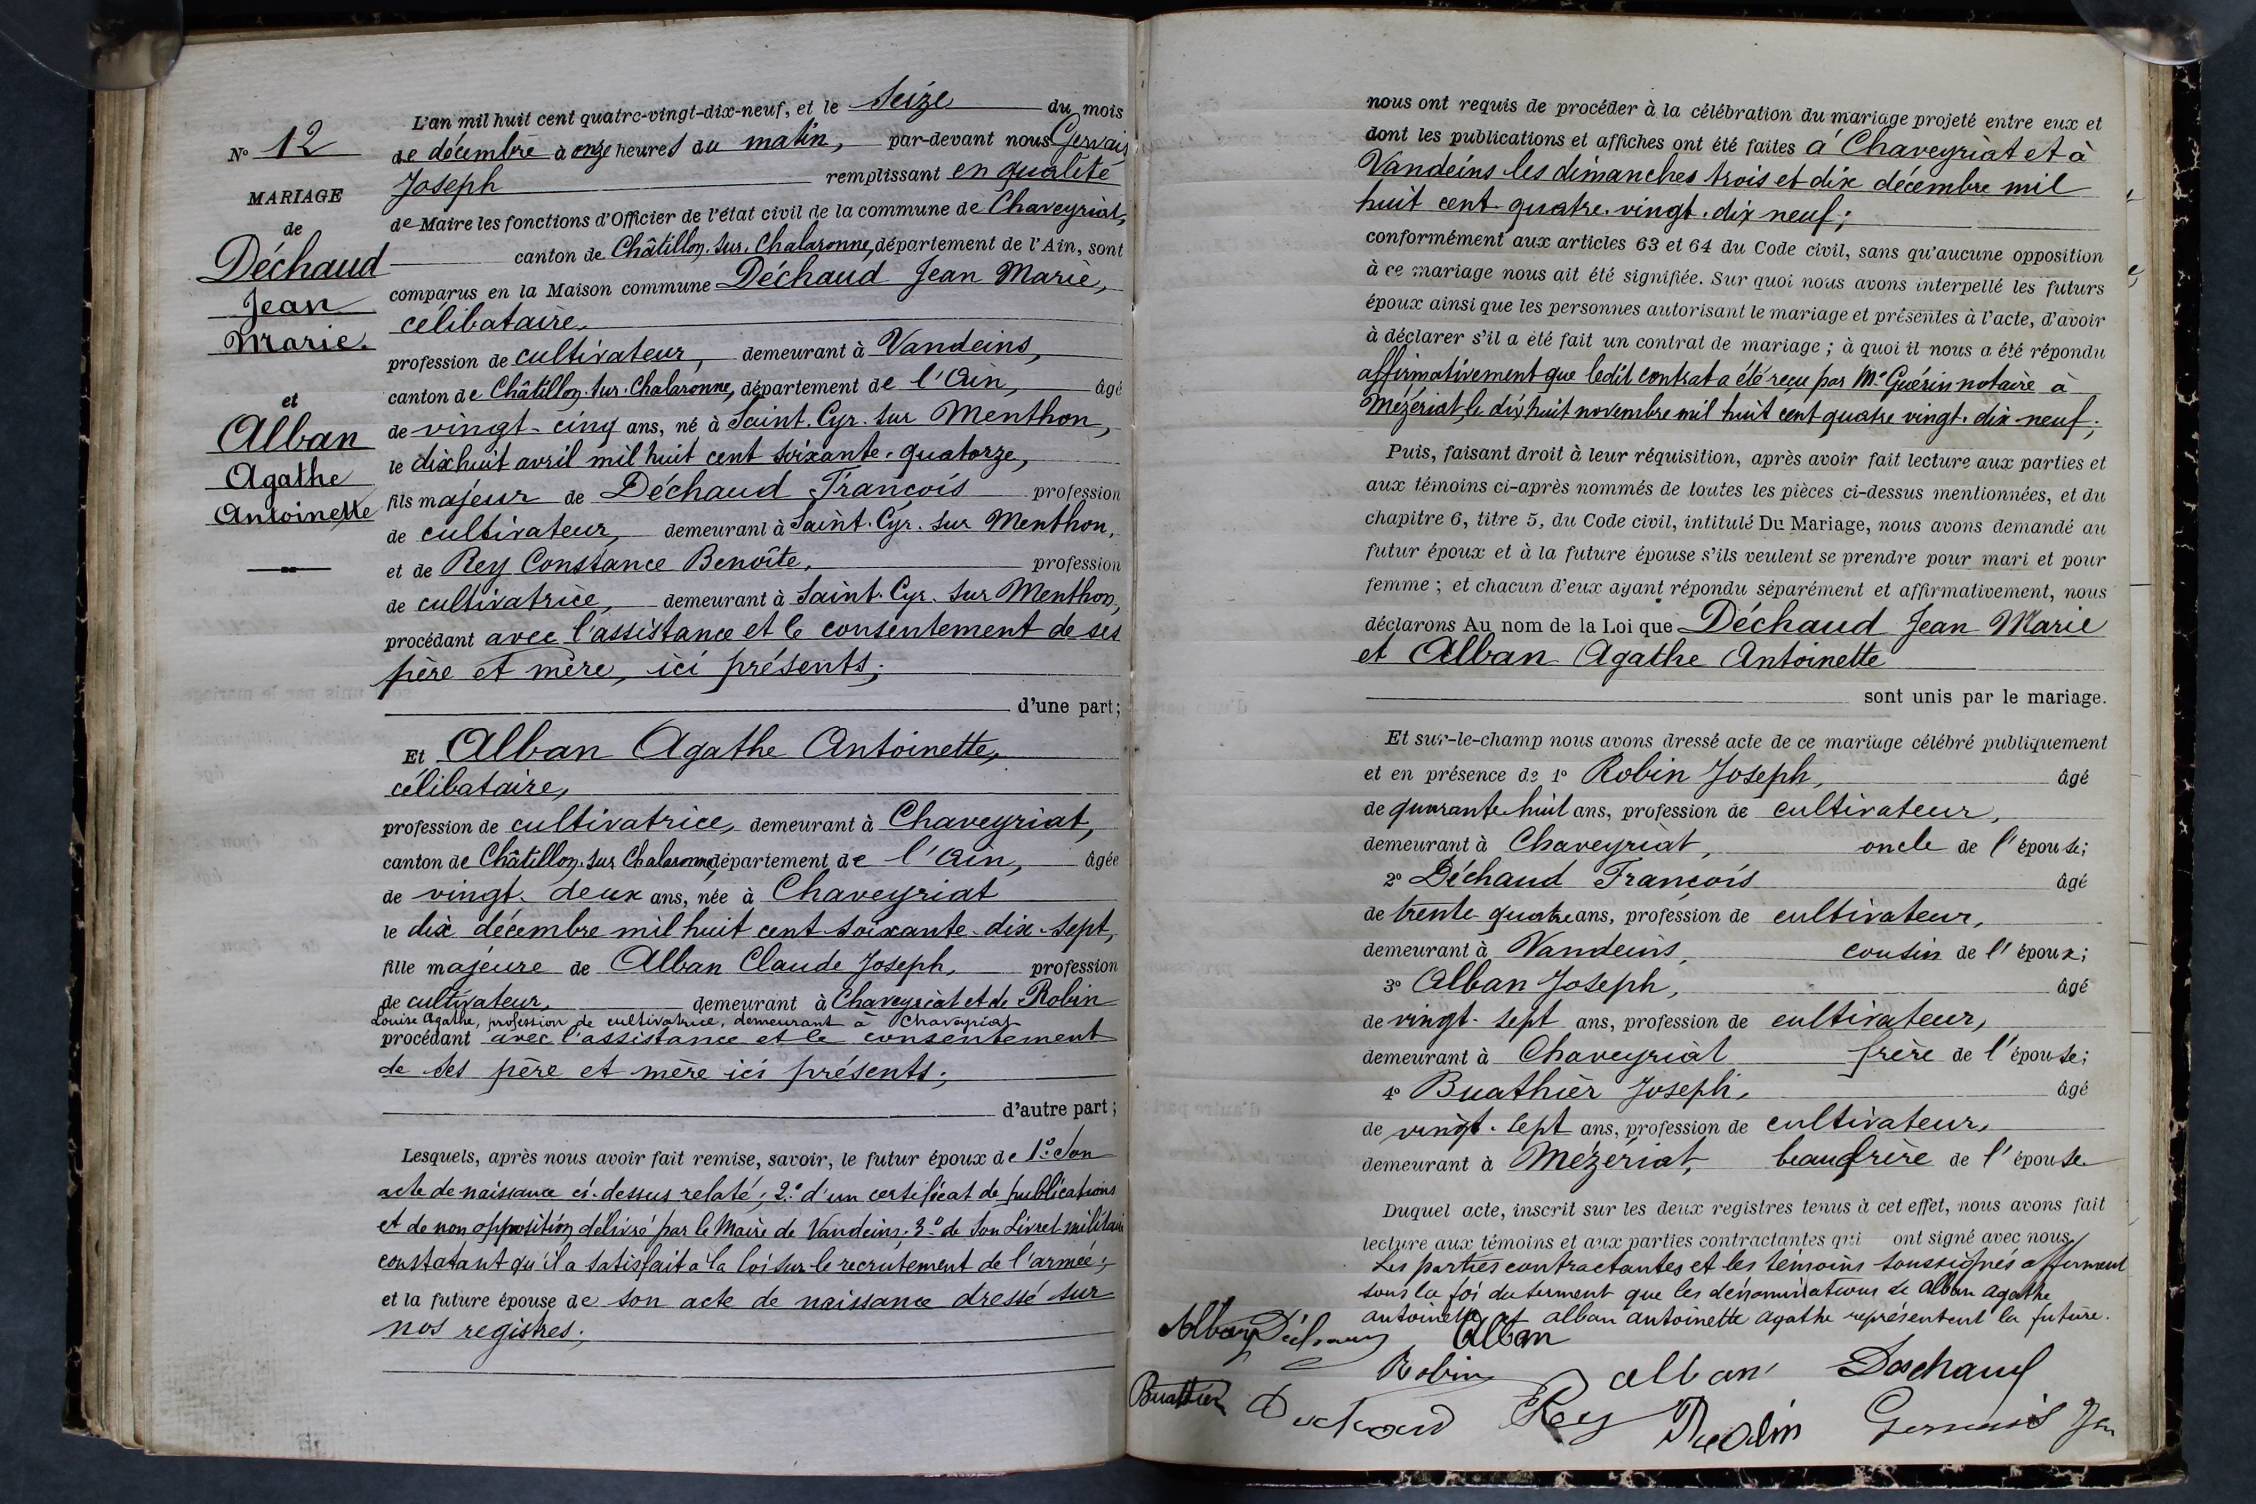 L'an mil huit cent quatre-vingt-dix-neuf, et le Seize du mois
de décembre à onze heures du matin, par-devant nous Gervais
Joseph remplissant en qualité
de Maire les fonctions d'Officier de l'état civil de la commune de Chaveyriat,
canton de Châtillon-sur-Chalaronne, département de l'Ain, sont
comparus en la Maison commune Déchaud Jean Marie,
célibataire,
profession de cultivateur, demeurant à Vandeins,
canton de Châtillon-sur-Chalaronne, département de l'Ain, âgé
de vingt-cinq ans, né à Saint-Cyr-sur Menthon,
le dix huit avril mil huit cent soixante-quatorze,
fils majeur de Déchaud François profession
de cultivateur, demeurant à Saint-Cyr-sur Menthon,
et de Rey Constance Benoîte, profession
de cultivatrice, demeurant à Saint-Cyr-sur Menthon,
procédant avec l'assistance et le consentement de ses
père et mère, ici présents;
d'une part;
Et Alban Agathe Antoinette,
célibataire,
profession de cultivatrice, demeurant à Chaveyriat,
canton de Châtillon-sur Chalaronne, département de l'Ain, âgée
de vingt-deux ans, née à Chaveyriat
le dix décembre mil huit cent soixante-dix-sept,
fille majeure de Alban Claude Joseph, profession
de cultivateur, demeurant à Chaveyriat et de Robin
Louise Agathe, profession de cultivatrice, demeurant à Chaveyriat
procédant avec l'assistance et le consentement
de ses père et mère ici présents;
d'autre part;
Lesquels, après nous avoir fait remise, savoir, le futur époux de 1.° Son
acte de naissance ci-dessus relaté; 2.° d'un certificat de publications
et de non opposition délivré par le Maire de Vandeins; 3.° de Son Livret militaire
constatant qu'il a satisfait à la loi sur le recrutement de l'armée;
et la future épouse de son acte de naissance dressé sur
nos registres;
N° 12
MARIAGE
de
Déchaud
Jean
Marie.
et
Alban
Agathe
Antoinette
nous ont requis de procéder à la célébration du mariage projeté entre eux et
dont les publications et affiches ont été faites à Chaveyriat et à
Vandeins les dimanches trois et dix décembre mil
huit cent quatre-vingt-dix neuf;
conformément aux articles 63 et 64 du Code civil, sans qu'aucune opposition
à ce mariage nous ait été signifiée. Sur quoi nous avons interpellé les futurs
époux ainsi que les personnes autorisant le mariage et présentes à l'acte, d'avoir
à déclarer s'il a été fait un contrat de mariage; à quoi il nous a été répondu
affirmativement que ledit contrat a été reçu par Me Guérin notaire à
Mézériat, le dix huit novembre mil huit cent quatre vingt-dix-neuf;
Puis, faisant droit à leur réquisition, après avoir fait lecture aux parties et
aux témoins ci-après nommés de toutes les pièces ci-dessus mentionnées, et du
chapitre 6, titre 5, du Code civil, intitulé Du Mariage, nous avons demandé au
futur époux et à la future épouse s'ils veulent se prendre pour mari et pour
femme; et chacun d'eux ayant répondu séparément et affirmativement, nous
déclarons Au nom de la Loi que Déchaud Jean Marie
et Alban Agathe Antoinette
sont unis par le mariage.
Et sur-le-champ nous avons dressé acte de ce mariage célébré publiquement
et en présence de 1° Robin Joseph, âgé
de quarante-huit ans, profession de cultivateur,
demeurant à Chaveyriat, oncle de l'épouse;
2° Déchaud François âgé
de trente-quatre ans, profession de cultivateur,
demeurant à Vandeins, cousin de l'époux;
3° Alban Joseph, âgé
de vingt-sept ans, profession de cultivateur,
demeurant à Chaveyriat frère de l'épouse;
4° Buathier Joseph, âgé
de vingt-sept ans, profession de cultivateur,
demeurant à Mézériat, beaufrère de l'épouse
Duquel acte, inscrit sur les deux registres tenus à cet effet, nous avons fait
lecture aux témoins et aux parties contractantes qui ont signé avec nous
Les parties contractantes et les témoins soussignés affirment
sous la foi du serment que les dénominations de Alban Agathe
antoinette et alban antoinette agathe représentent la future.
Alban Déchaud Alban
Robin alban Dechaud
Buathier Dechaud Rey Gervais